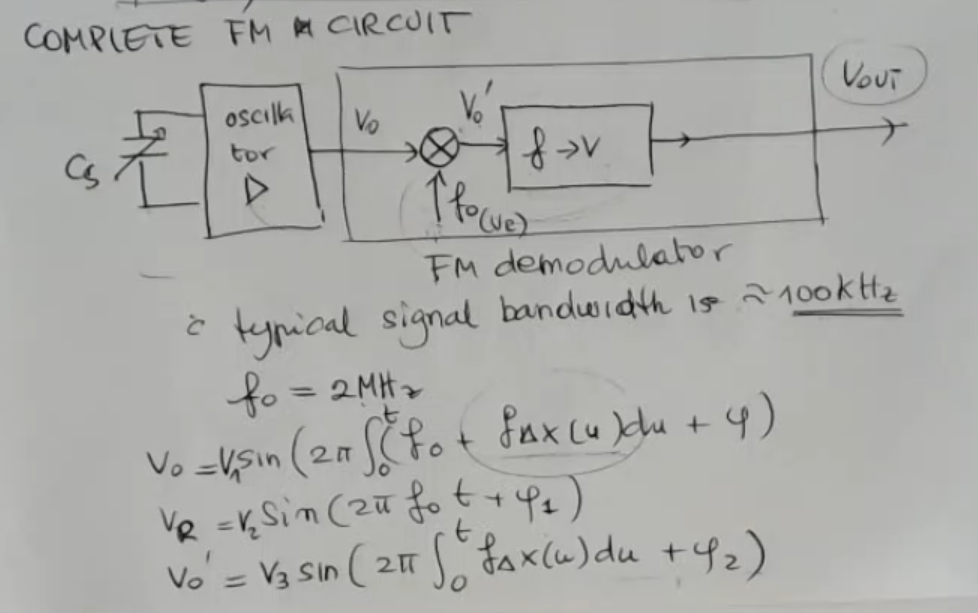 COMPLETE FM CIRCUIT
Cs
oscilla
tor
Vo
Vo'
f→V
Vout
fo(VR)
FM demodulator
typical signal bandwidth is ≈100kHz
fo = 2MHz
Vo = V₁sin(2π∫₀ᵗ(fo + fΔx(u)du + φ)
VR = V₂Sin(2π fo t + φ₁)
Vo' = V₃ sin(2π ∫₀ᵗ fΔx(u)du + φ₂)